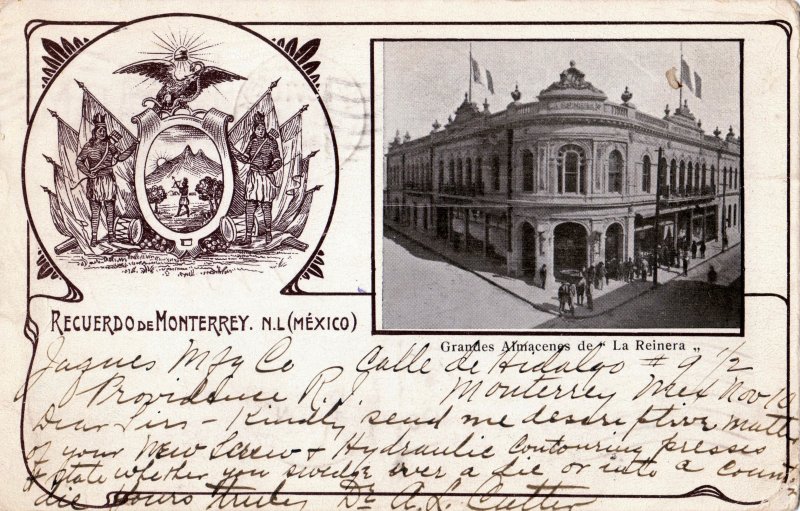 RECUERDO DE MONTERREY. N.L (MÉXICO)
LA REINERA
Grandes Almacenes de "La Reinera„
Jaques Mfg Co Calle de Hidalgo #9 1/2
Providense R.I. Monterrey Mex Nov 10
Dear Sirs - Kindly send me descriptive matter
of your New Screw & Hydraulic Contouring presses
& state whether you swedge over a die or into a count
die Yours truly Dr A. L. Cutter